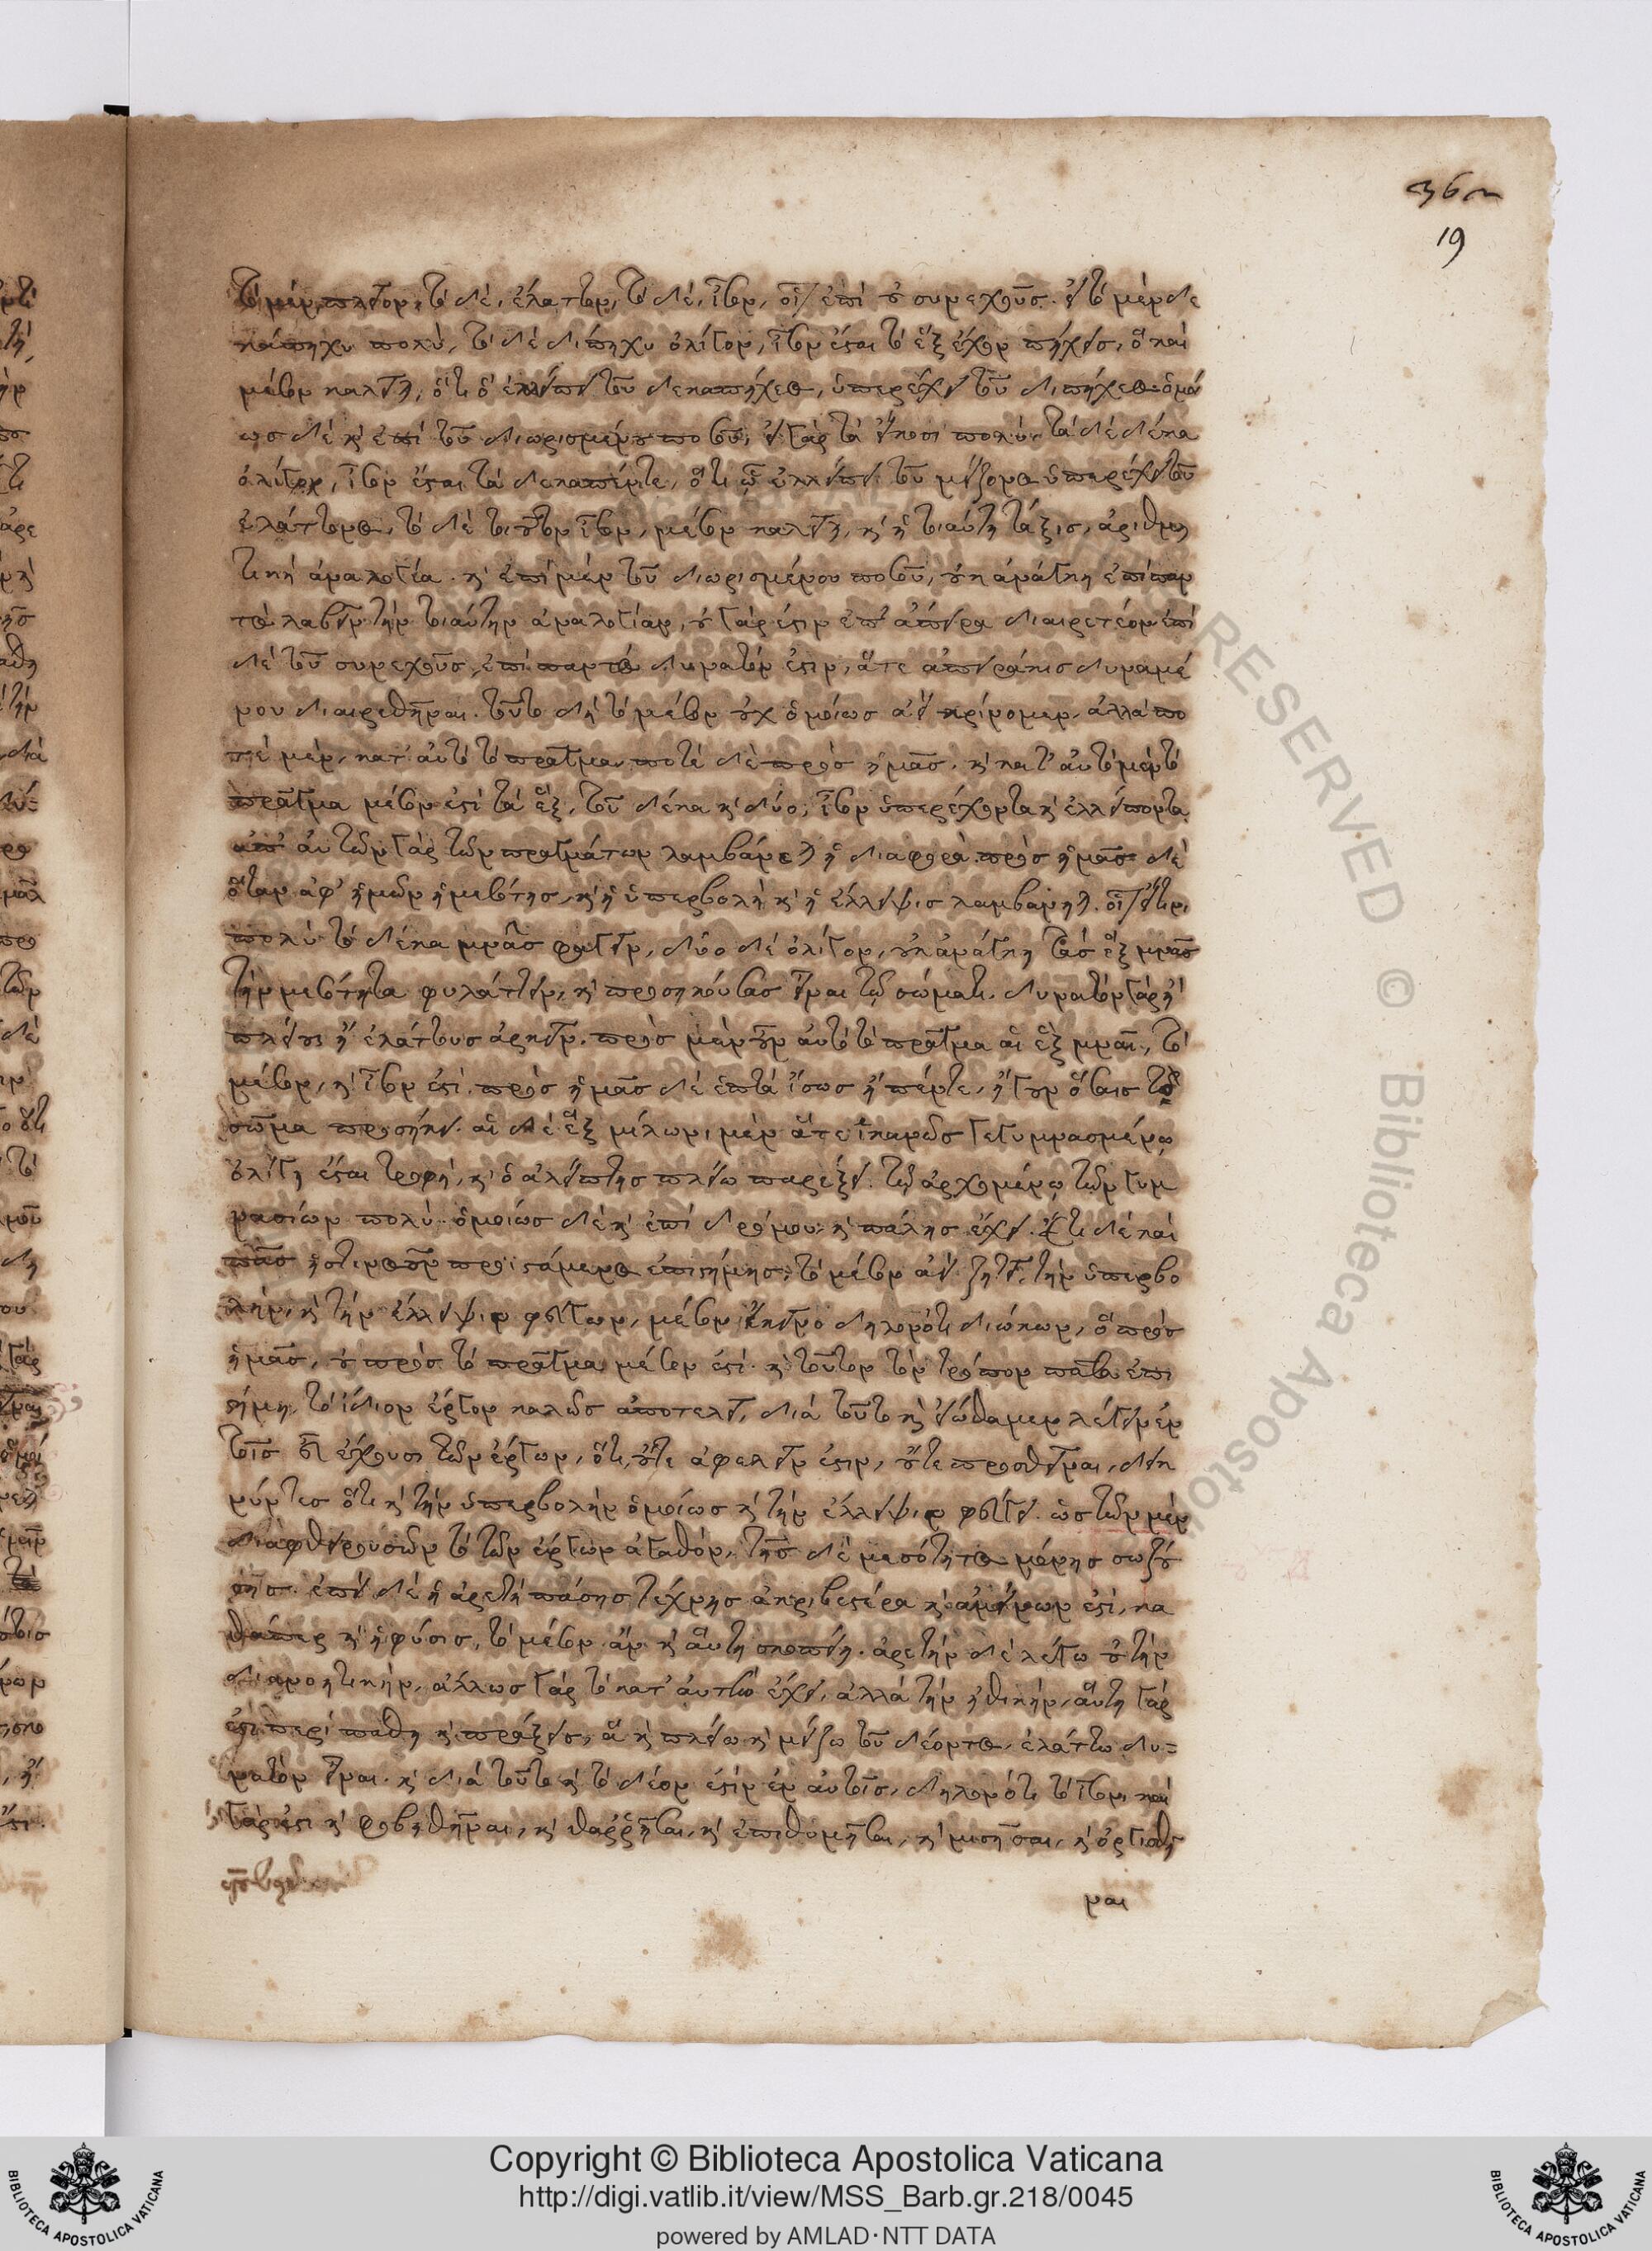 36
19
τὸ μὲν πλεῖον, τὸ δὲ, ἔλαττον, τὸ δὲ, ἶσον, οἷον ἐπὶ τοῦ συνεχοῦς. εἰ τὸ μὲν δε
κάπηχυ πολὺ, τὸ δὲ δίπηχυ ὀλίγον, ἶσον ἔσται τὸ ἓξ ἔχον πήχεις, ὃ καὶ
μέσον καλεῖται, ὅτι ᾧ ἐλλείπει τοῦ δεκαπήχεος, ὑπερέχει τοῦ διπήχεος. ὁμοί
ως δὲ καὶ ἐπὶ τοῦ διωρισμένου ποσοῦ, εἰ γὰρ τὰ εἴκοσι πολὺ, τὰ δὲ δέκα
ὀλίγον, ἶσον ἔσται τὰ δεκαπέντε, ὅτι ᾧ ἐλλείπει τοῦ μείζονος ὑπερέχει τοῦ
ἐλάττονος, τὸ δὲ τοιοῦτον ἶσον, μέσον καλεῖται, καὶ ἡ τοιαύτη τάξις, ἀριθμη
τικὴ ἀναλογία. καὶ ἐπὶ μὲν τοῦ διωρισμένου ποσοῦ, οὐκ ἀνάγκη ἐπὶ παν
τὸς λαβεῖν τὴν τοιαύτην ἀναλογίαν, οὐ γάρ ἐστιν ἐπ' ἄπειρα διαιρετέον ἐπὶ
δὲ τοῦ συνεχοῦς, ἐπὶ παντὸς δυνατόν ἐστιν, ἅτε ἀπειράκις δυναμέ
νου διαιρεθῆναι. τοῦτο δὴ τὸ μέσον οὐχ ὁμοίως ἀεὶ κρίνομεν, ἀλλὰ πο
τὲ μὲν, κατ' αὐτὸ τὸ πρᾶγμα ποτὲ δὲ πρὸς ἡμᾶς, καὶ κατ' αὐτὸ μὲν τὸ
πρᾶγμα μέσον ἐστὶ τὰ ἓξ, τοῦ δέκα καὶ δύο, ἶσον ὑπερέχοντα καὶ ἐλλείποντα
ἀπ' αὐτῶν γὰρ τῶν πραγμάτων λαμβάνεται ἡ διαφορὰ πρὸς ἡμᾶς δὲ
ὅταν ἀφ' ἡμῶν ἡ μεσότης, καὶ ἡ ὑπερβολὴ καὶ ἡ ἔλλειψις λαμβάνηται. οἷον εἴ τινι
πολὺ τὸ δέκα μνᾶς φαγεῖν, δύο δὲ ὀλίγον, οὐκ ἀνάγκη τὰς ἓξ μνᾶς
τὴν μεσότητα φυλάττειν, καὶ προσηκούσας εἶναι τῷ σώματι. δυνατὸν γὰρ ἢ
πλείους ἢ ἐλάττους ἀρκεῖν. πρὸς μὲν οὖν αὐτὸ τὸ πρᾶγμα αἱ ἓξ μναῖ, τὸ
μέσον, καὶ ἶσον ἐστὶ. πρὸς ἡμᾶς δὲ ἑπτὰ ἴσως ἢ πέντε, ἤγουν ὅσαις τὸ
σῶμα προσήκει. αἱ δὲ ἓξ μίλωνι μὲν ἅτε ἱκανῶς γεγυμνασμένῳ
ὀλίγη ἔσται τροφή, καὶ ὁ ἀλείπτης πλείω παρέξει. τῷ ἀρχομένῳ τῶν γυμ
νασίων πολύ. ὁμοίως δὲ καὶ ἐπὶ δρόμου καὶ πάλης ἔχει. ἔτι δὲ καὶ
πᾶς ἡστινοσοῦν προϊστάμενος ἐπιστήμης, τὸ μέσον ἀεὶ ζητεῖ, τὴν ὑπερβο
λὴν, καὶ τὴν ἔλλειψιν φεύγων, μέσον ἐκεῖνο δηλονότι διώκων, ὃ πρὸς
ἡμᾶς, οὐ πρὸς τὸ πρᾶγμα μέσον ἐστὶ. καὶ τοῦτον τὸν τρόπον πᾶσα ἐπι
στήμη, τὸ ἴδιον ἔργον καλῶς ἀποτελεῖ, διὰ τοῦτο καὶ εἰώθαμεν λέγειν ἐν
τοῖς εὖ ἔχουσι τῶν ἔργων, ὅτι, οὔτε ἀφελεῖν ἐστιν, οὔτε προσθεῖναι, δεικ
νύντες ὅτι καὶ τὴν ὑπερβολὴν ὁμοίως καὶ τὴν ἔλλειψιν φεύγει. ὡς τῶν μὲν
διαφθειρουσῶν τὸ τῶν ἔργων ἀγαθὸν, τῆς δὲ μεσότητος μόνης σωζού
σης. ἐπεὶ δὲ ἡ ἀρετὴ πάσης τέχνης ἀκριβεστέρα καὶ ἀμείνων ἐστὶ, κα
θάπερ καὶ ἡ φύσις, τὸ μέσον ἂν καὶ αὕτη σκοποίη. ἀρετὴν δὲ λέγω οὐ τὴν
διανοητικὴν, ἄλλως γὰρ τὸ κατ' αὐτὴν ἔχει, ἀλλὰ τὴν ἠθικὴν, αὕτη γάρ
ἐστι περὶ πάθη καὶ πράξεις, ἃ καὶ πλείω καὶ μείζω τοῦ δέοντος, ἐλάττω δυ=
νατὸν εἶναι. καὶ διὰ τοῦτο καὶ τὸ δέον ἐστὶν ἐν αὐτοῖς, δηλονότι τὸ ἶσον, καὶ
γάρ ἐστι καὶ φοβηθῆναι, καὶ θαρρῆσαι, καὶ ἐπιθυμῆσαι, καὶ μισῆσαι, καὶ ὀργισθῆ
ναι
Copyright © Biblioteca Apostolica Vaticana
http://digi.vatlib.it/view/MSS_Barb.gr.218/0045
powered by AMLAD·NTT DATA